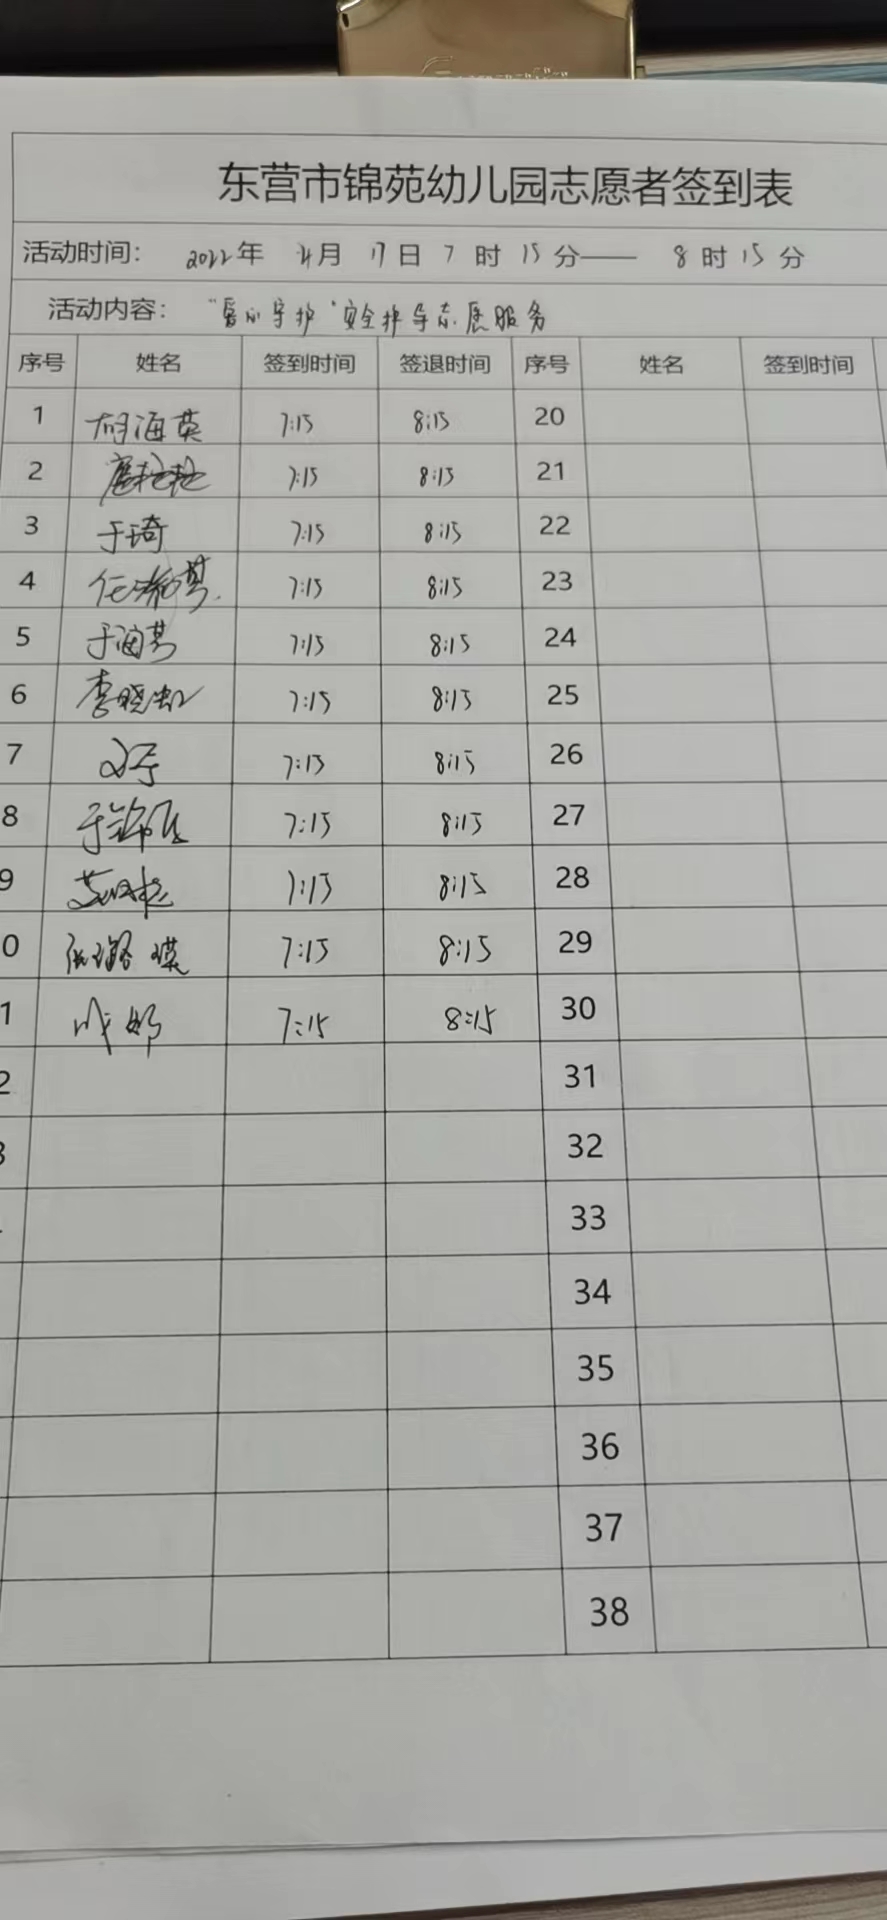 东营市锦苑幼儿园志愿者签到表
活动时间： 2022年 月 17日 7 时 15分—— 8 时 15分
活动内容： "爱心守护"安全护导志愿服务
序号 姓名 签到时间 签退时间 序号 姓名 签到时间
1 胡海英 7:15 8:15 20
2 7:15 8:15 21
3 于琦 7:15 8:15 22
4 任 7:15 8:15 23
5 于海 7:15 8:15 24
6 李晓虹 7:15 8:15 25
7 7:15 8:15 26
8 于锦 7:15 8:15 27
9 7:15 8:15 28
0 张璐瑛 7:15 8:15 29
1 成娜 7:15 8:15 30
2 31
3 32
33
34
35
36
37
38